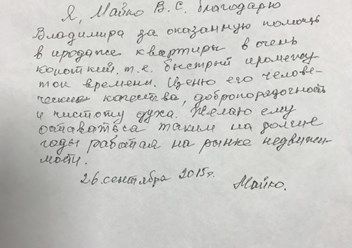 Я, Майко В.С. благодарю
Владимира за оказанную помощь
в продаже квартиры в очень
короткий, т.е. быстрый промежу
ток времени. Ценю его челове-
ческие качества, добропорядочность
и чистоту духа. Желаю ему
оставаться таким на долгие
годы работая на рынке недвижи-
мости.
26 сентября 2015г.
Майко.